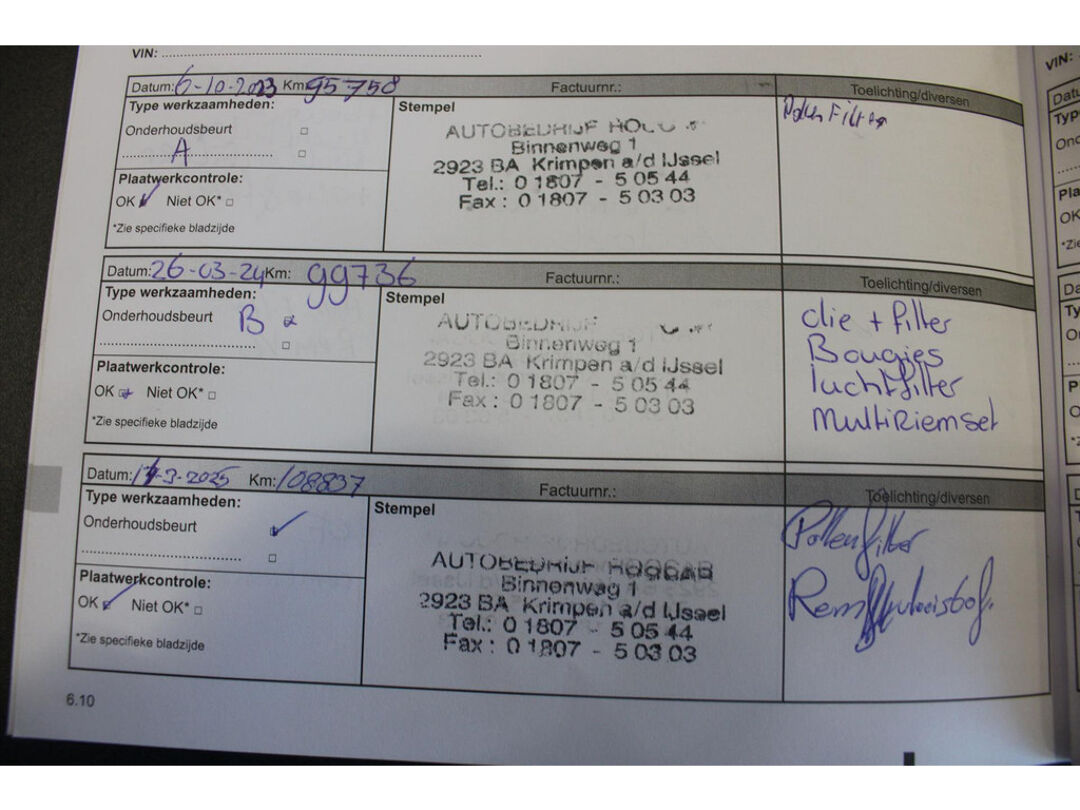 VIN:
Datum: 6-10-2023 Km: 95758 Factuurnr.: Toelichting/diversen
Type werkzaamheden:
Onderhoudsbeurt
A
Plaatwerkcontrole:
OK Niet OK*
*Zie specifieke bladzijde
Stempel
AUTOBEDRIJF
Binnenweg 1
2923 BA Krimpen a/d IJssel
Tel.: 0 1807 - 5 05 44
Fax : 0 1807 - 5 03 03
Pollen Filter
Datum: 26-03-24 Km: 99736 Factuurnr.: Toelichting/diversen
Type werkzaamheden:
Onderhoudsbeurt B
Plaatwerkcontrole:
OK Niet OK*
*Zie specifieke bladzijde
Stempel
AUTOBEDRIJF
Binnenweg 1
2923 BA Krimpen a/d IJssel
Tel.: 0 1807 - 5 05 44
Fax : 0 1807 - 5 03 03
olie + filter
Bougies
luchtfilter
MultiRiemset
Datum: -3-2025 Km: 108837 Factuurnr.: Toelichting/diversen
Type werkzaamheden:
Onderhoudsbeurt
Plaatwerkcontrole:
OK Niet OK*
*Zie specifieke bladzijde
Stempel
AUTOBEDRIJF
Binnenweg 1
2923 BA Krimpen a/d IJssel
Tel.: 0 1807 - 5 05 44
Fax : 0 1807 - 5 03 03
Pollenfilter
6.10
VIN: